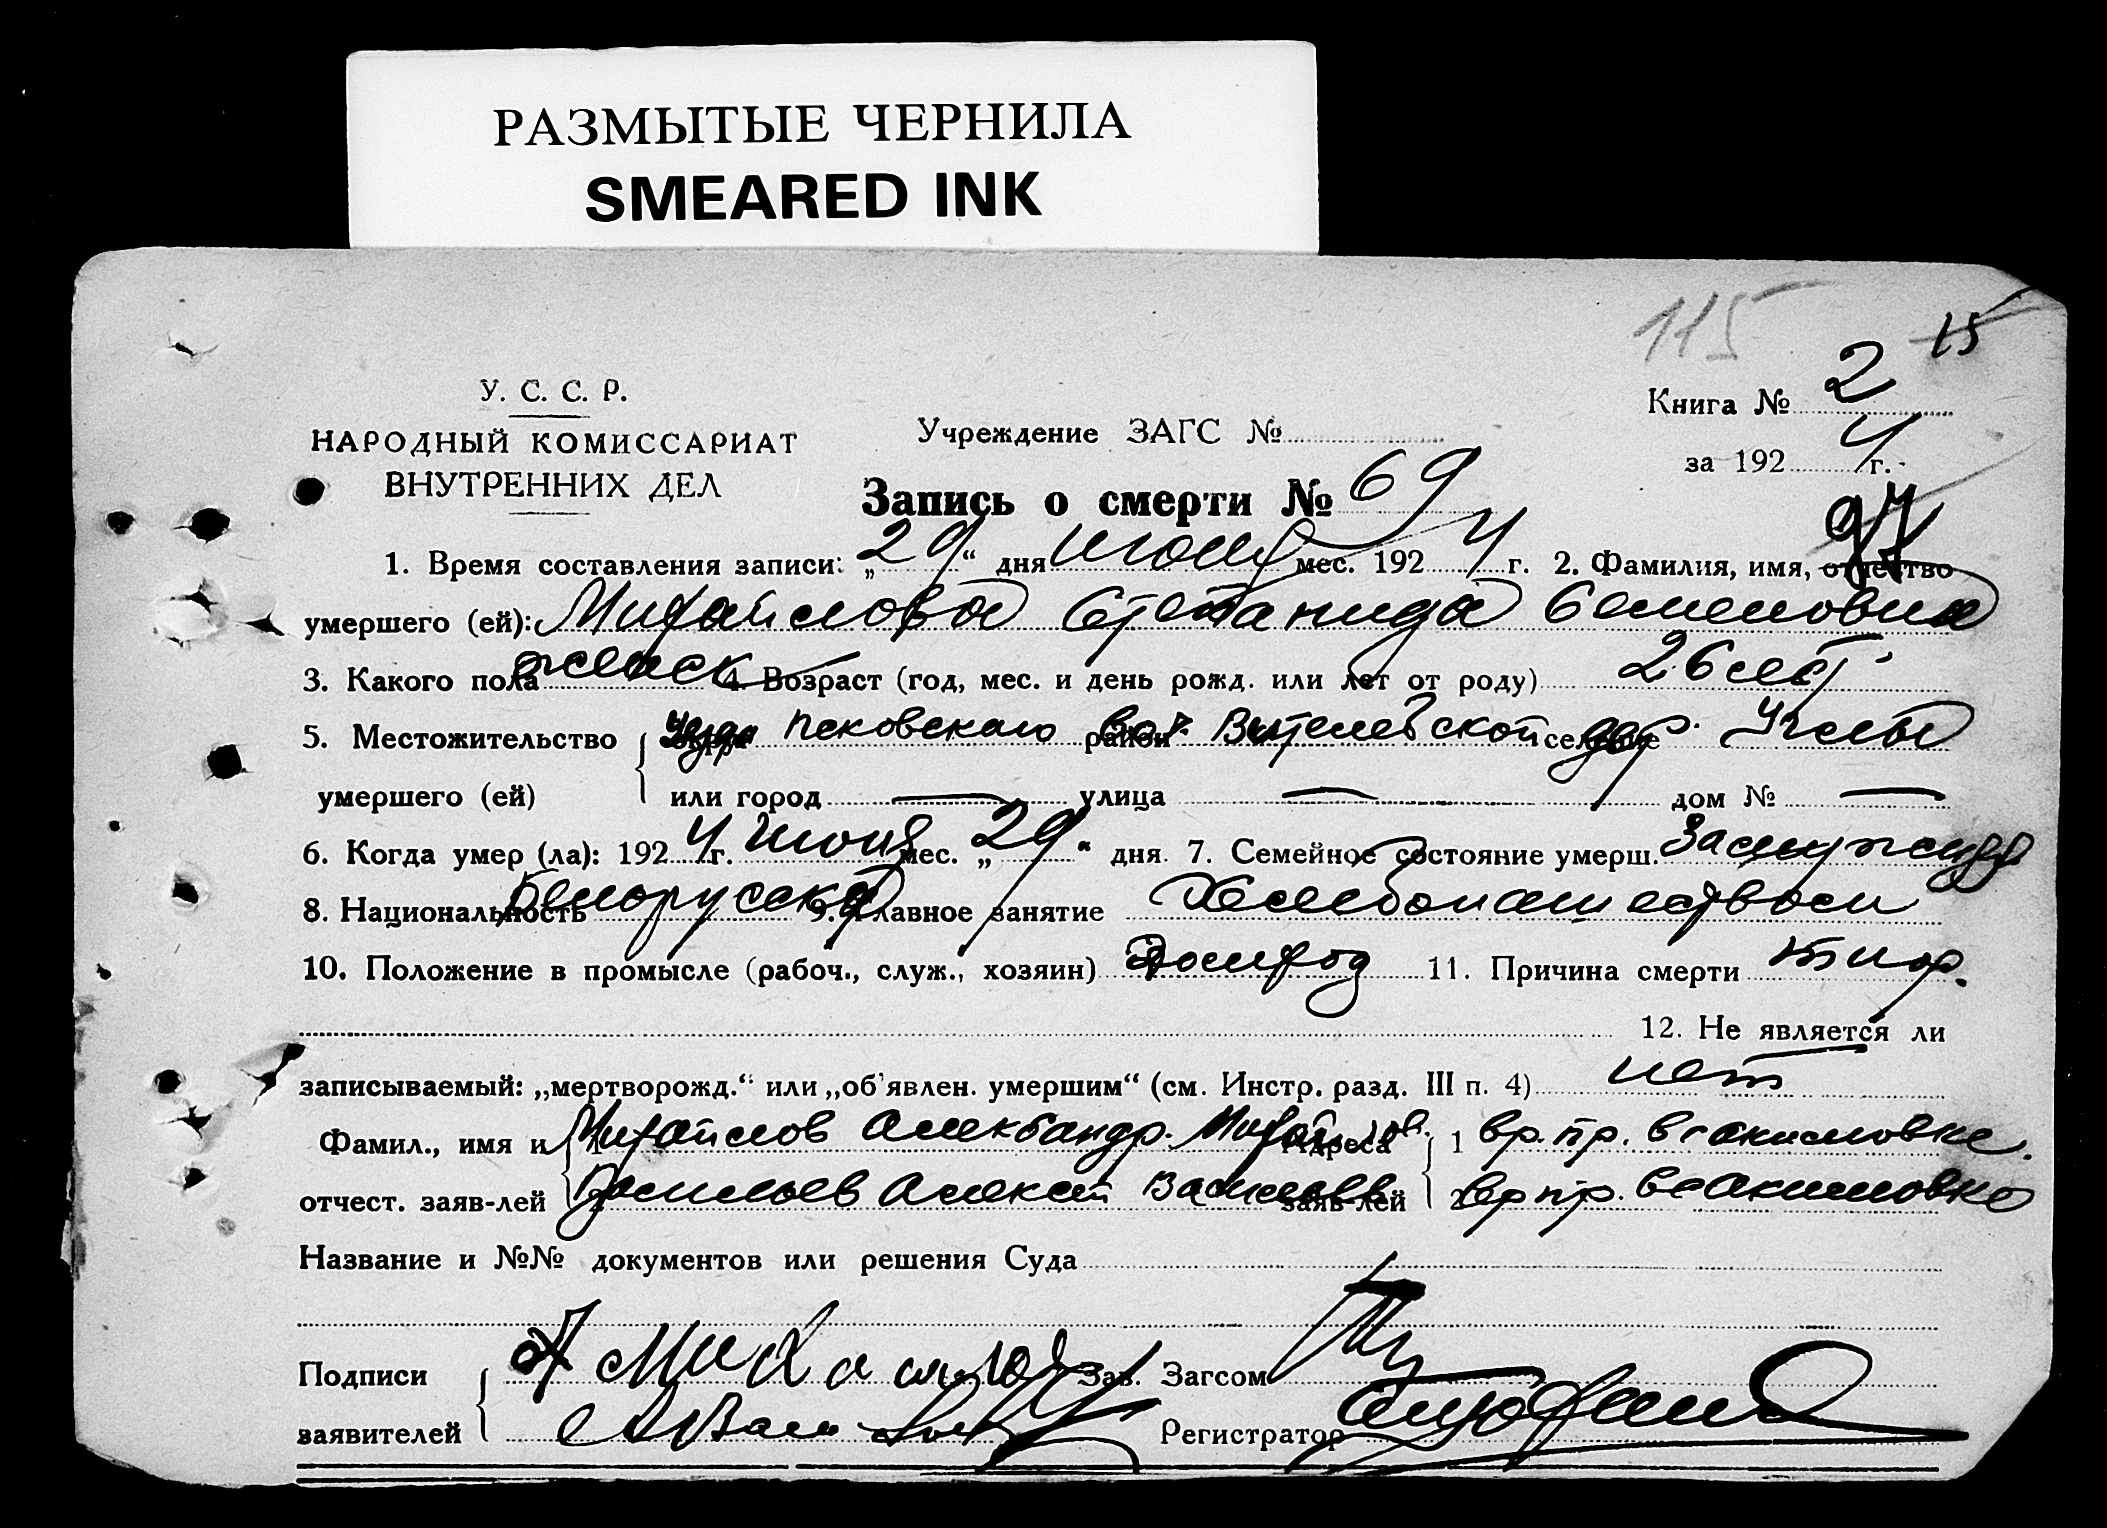 РАЗМЫТЫЕ ЧЕРНИЛА
SMEARED INK
115 15
У. С. С. Р.
НАРОДНЫЙ КОМИССАРИАТ
ВНУТРЕННИХ ДЕЛ
Учреждение ЗАГС №
Книга № 2
за 1924 г.
Запись о смерти № 69
97
1. Время составления записи: „29“ дня июня мес. 1924 г. 2. Фамилия, имя, отчество
умершего (ей): Михайлова Степанида Семеновна
3. Какого пола женск 4. Возраст (год, мес. и день рожд. или лет от роду) 26 лет
5. Местожительство уезда Псковского район Вол. Витебской селение дер.
умершего (ей) или город — улица — дом № —
6. Когда умер (ла): 1924 г. июня мес. „29“ дня. 7. Семейное состояние умерш. Замужняя
8. Национальность белоруска 9. Главное занятие Хлебопашеством
10. Положение в промысле (рабоч., служ., хозяин) 11. Причина смерти тиф.
12. Не является ли
записываемый: „мертворожд.“ или „об'явлен. умершим“ (см. Инстр. разд. III п. 4) нет
Фамил., имя и 1 Михайлов Александр Михайлов. Адреса 1 вр. пр. в с Акимовке.
отчест. заяв-лей 2 Васильев Алексей Васильев заяв-лей 2 вр пр. в с Акимовке
Название и №№ документов или решения Суда
Подписи А Михайлов Зав. Загсом
заявителей А Васильев Регистратор